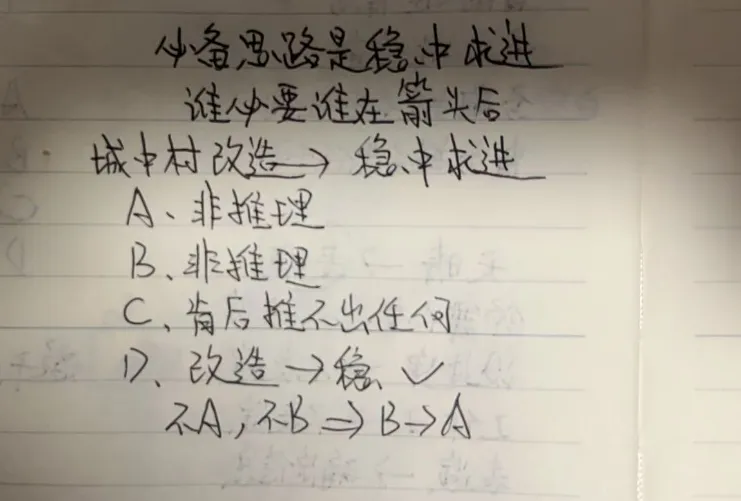 必备思路是稳中求进
谁必要谁在箭头后
城中村改造→稳中求进
A、非推理
B、非推理
C、肯后推不出任何
D、改造→稳 ✓
不A，不B⇒B→A